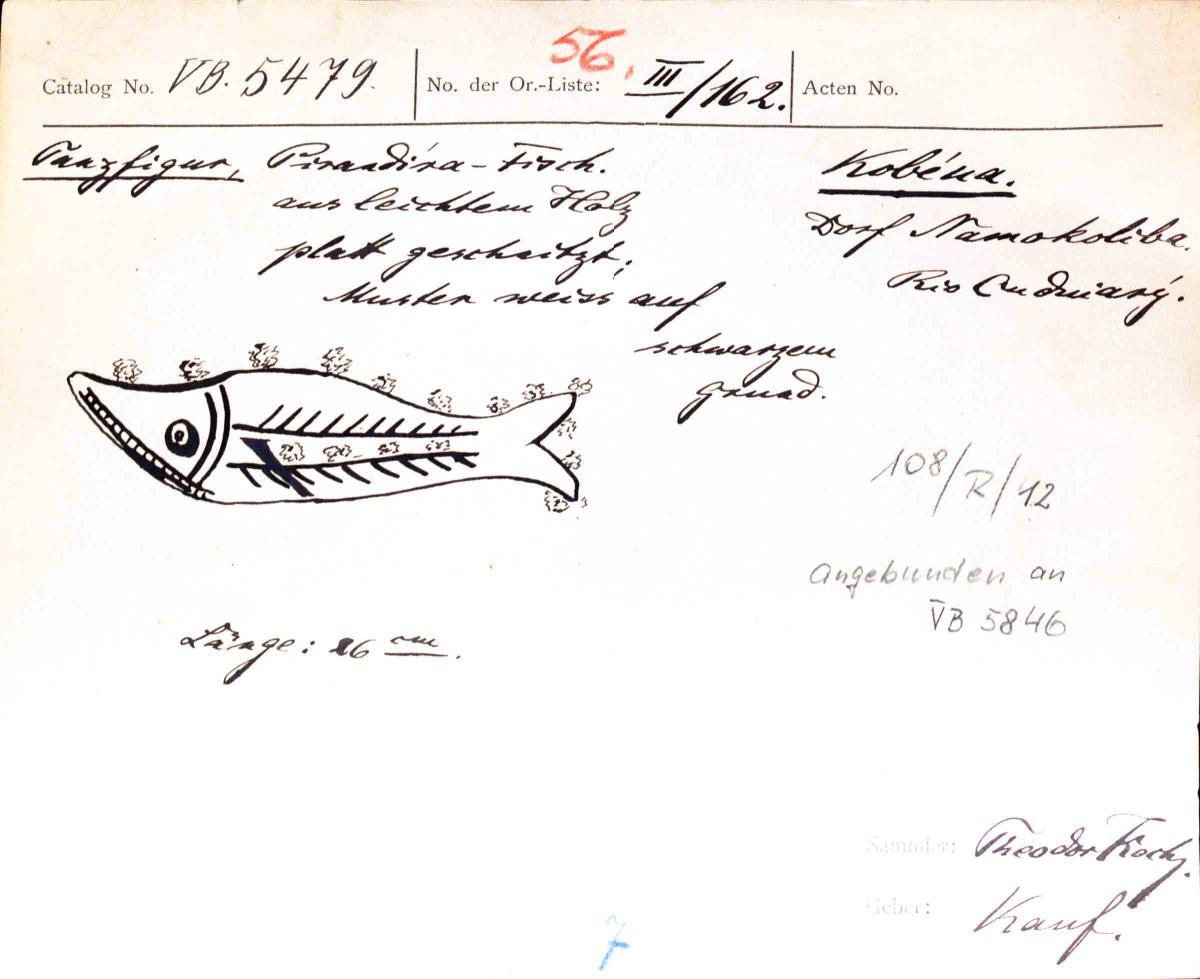 56.
Catalog No. VB. 5479. No. der Or.-Liste: III/162. Acten No.
Tanzfigur, Pirandíra-Fisch. Kobéua.
aus leichtem Holz Dorf Namokoliba.
platt geschnitzt; Rio Cuduiarý.
Muster weiss auf
schwarzem
Grund.
108/R/42
angebunden an
VB 5846
Länge: 26 cm.
Sammler: Theodor Koch.
Geber: Kauf.
7